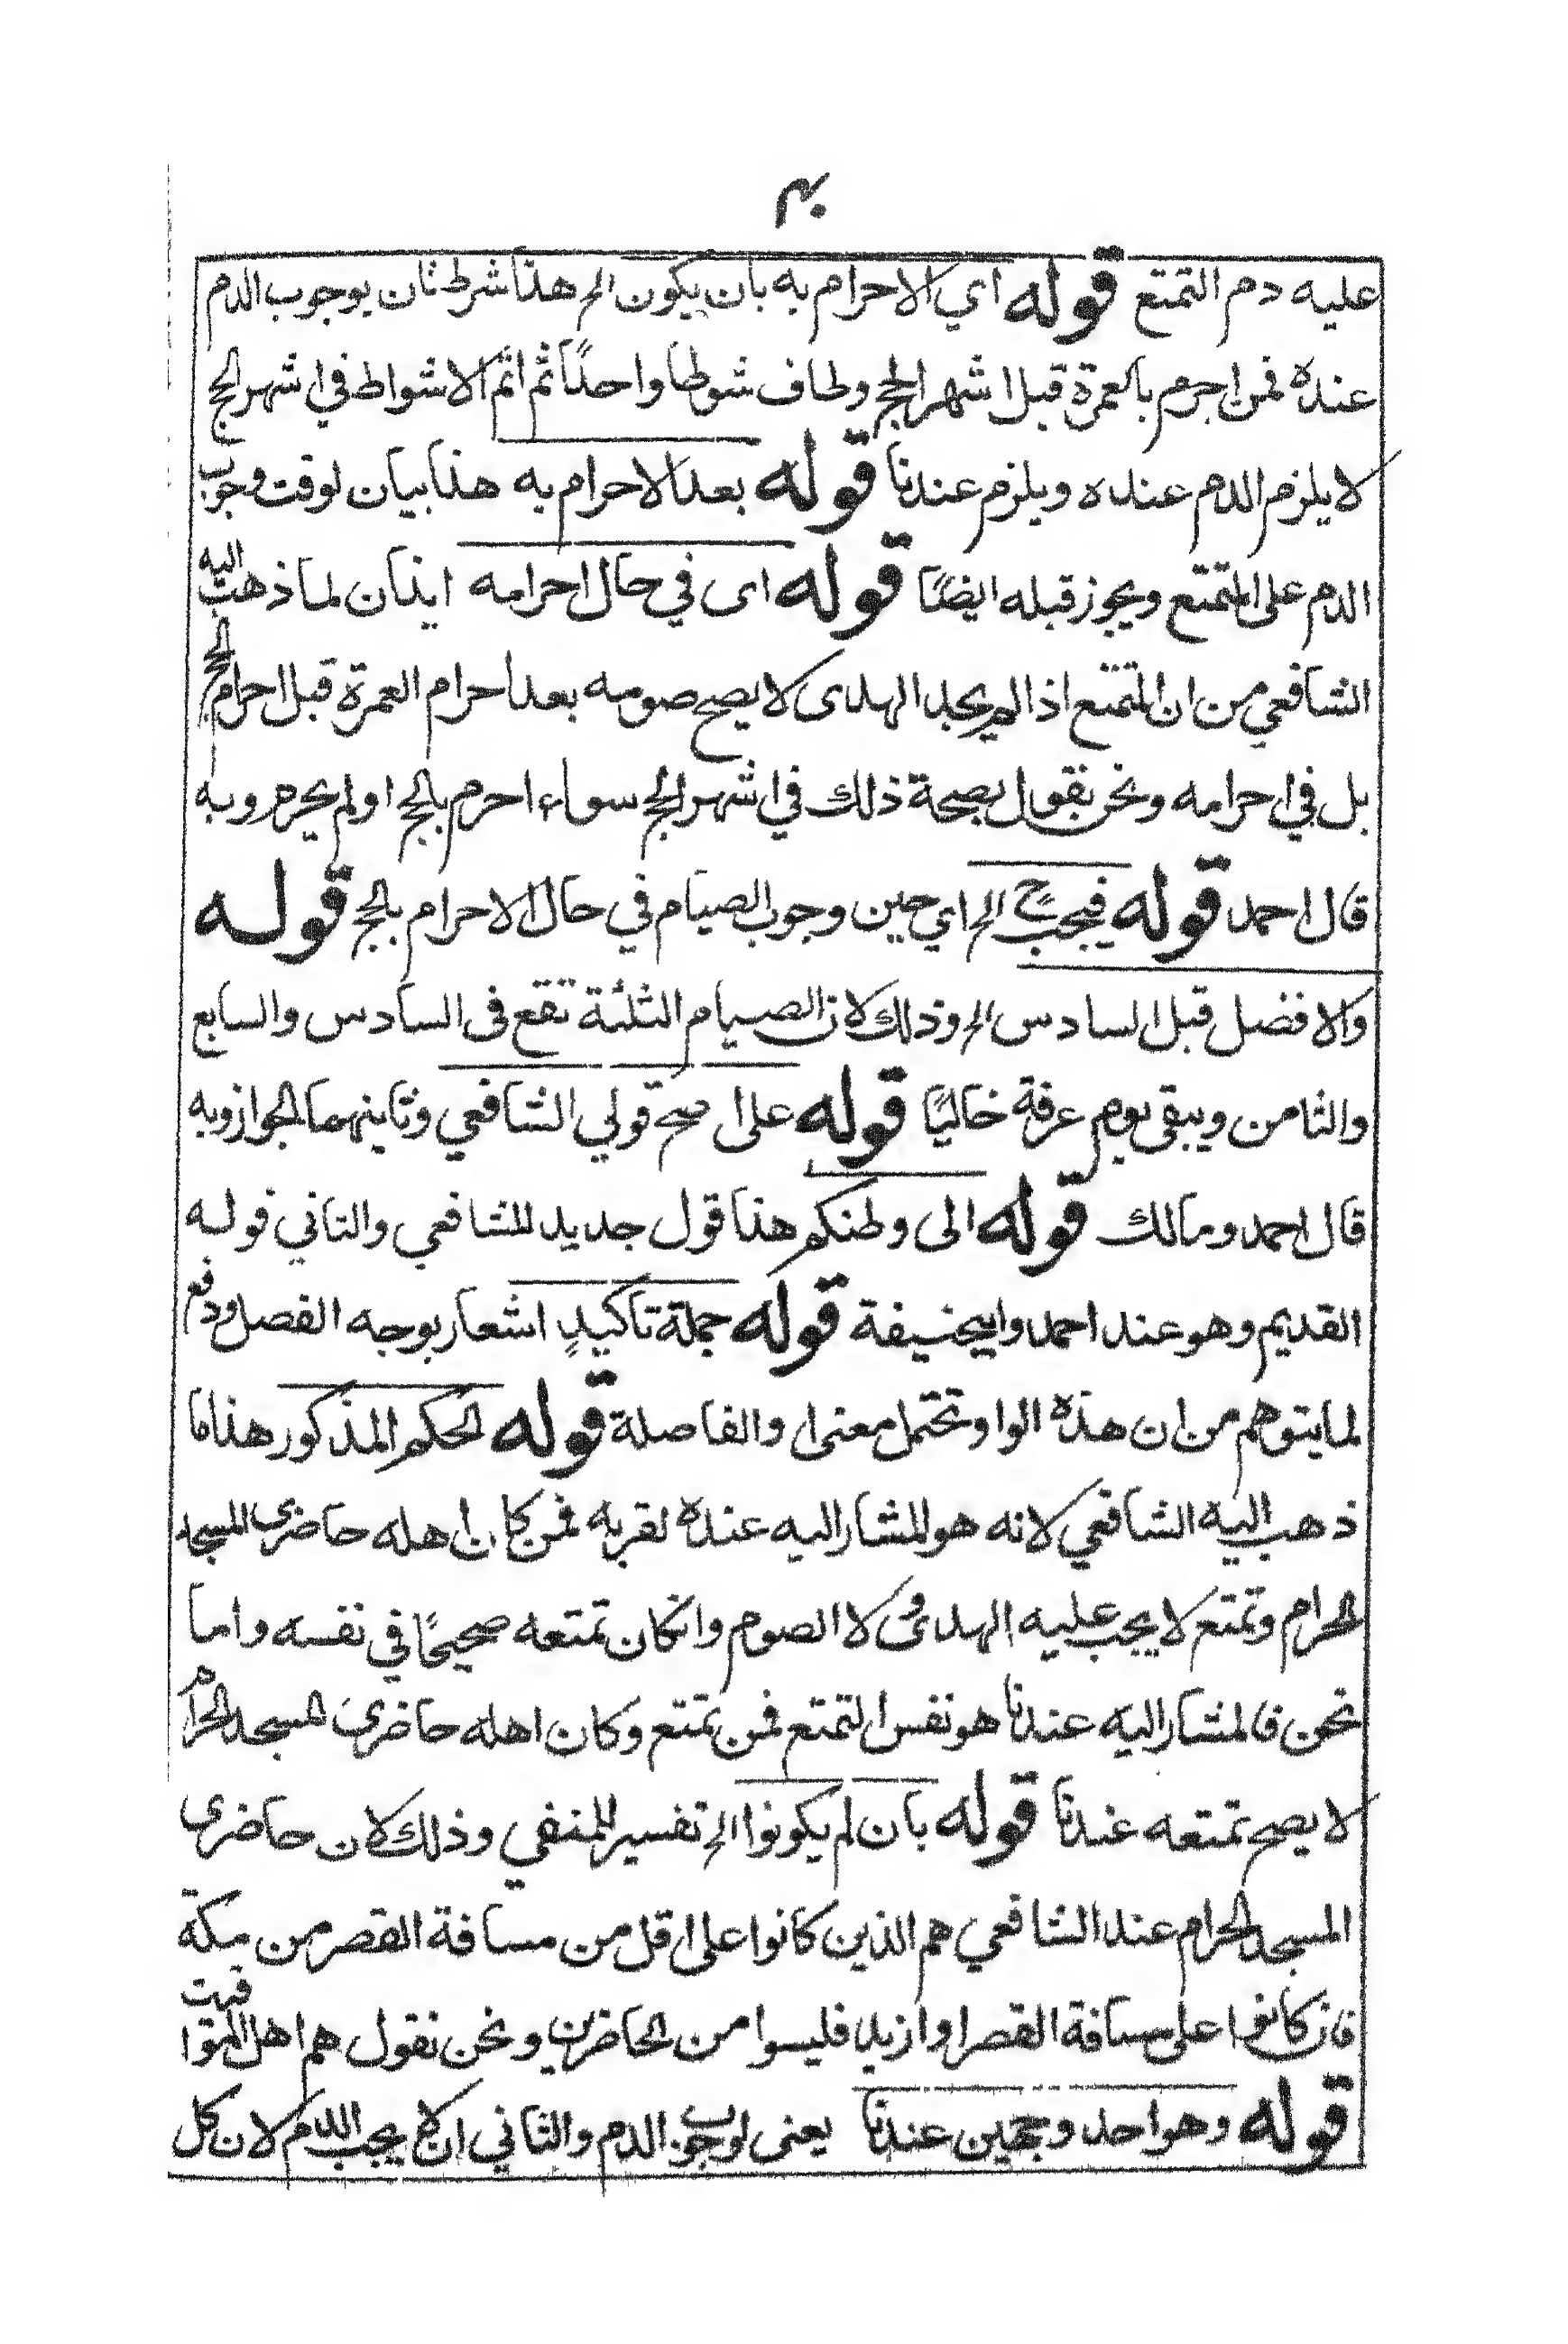 عليه دم التمتع قوله اي الاحرام به بان يكون الخ هذا شرط ثان بوجوب الدم
عنده فمن احرم بالعمرة قبل اشهر الحج وطاف شوطا واحدًا ثم اتم الاشواط في اشهر الحج
لا يلزم الدم عنده ويلزم عندنا قوله بعد الاحرام به هذا بيان لوقت وجوب
الدم على المتمتع ويجوز قبله ايضًا قوله اى في حال احرامه ايذان لما ذهب اليه
الشافعي من ان المتمتع اذا لم يجد الهدى لا يصح صومه بعد احرام العمرة قبل احرام الحج
بل في احرامه ونحن نقول بصحة ذلك في اشهر الحج سواء احرم بالحج اولم يحرم وبه
قال احمد قوله فيجب ح الخ اي حين وجوب الصيام في حال الاحرام بالحج قوله
والافضل قبل السادس الخ وذلك لان الصيام الثلثة تقع فى السادس والسابع
والثامن ويبقى يوم عرفة خاليًا قوله على اصح قولي الشافعي وثانيهما الجواز وبه
قال احمد ومالك قوله الى وطنكم هذا قول جديد للشافعي والثاني قوله
القديم وهو عند احمد وابيحنيفة قوله جملة تاكيدٍ اشعار بوجه الفصل ودفع
لما يتوهم من ان هذه الواو تحتمل معنى او الفاصلة قوله الحكم المذكور هذا ما
ذهب اليه الشافعي لانه هو المشار اليه عنده لقربه فمن كان اهله حاضرى المسجد
الحرام وتمتع لا يجب عليه الهدى ولا الصوم وانكان تمتعه صحيحًا في نفسه واما
نحن فالمشار اليه عندنا هو نفس التمتع فمن تمتع وكان اهله حاضري المسجد الحرام
لا يصح تمتعه عندنا قوله بان لم يكونوا الخ تفسير للمنفي وذلك لان حاضرى
المسجد الحرام عند الشافعي هم الذين كانوا على اقل من مسافة القصر من مكة
فان كانوا على مسافة القصر او ازيد فليسوا من الحاضرين ونحن نقول هم اهل المواقيت
قوله وهو احد وجهين عندنا يعنى لوجوب الدم والثاني ان لا يجب الدم لان كل